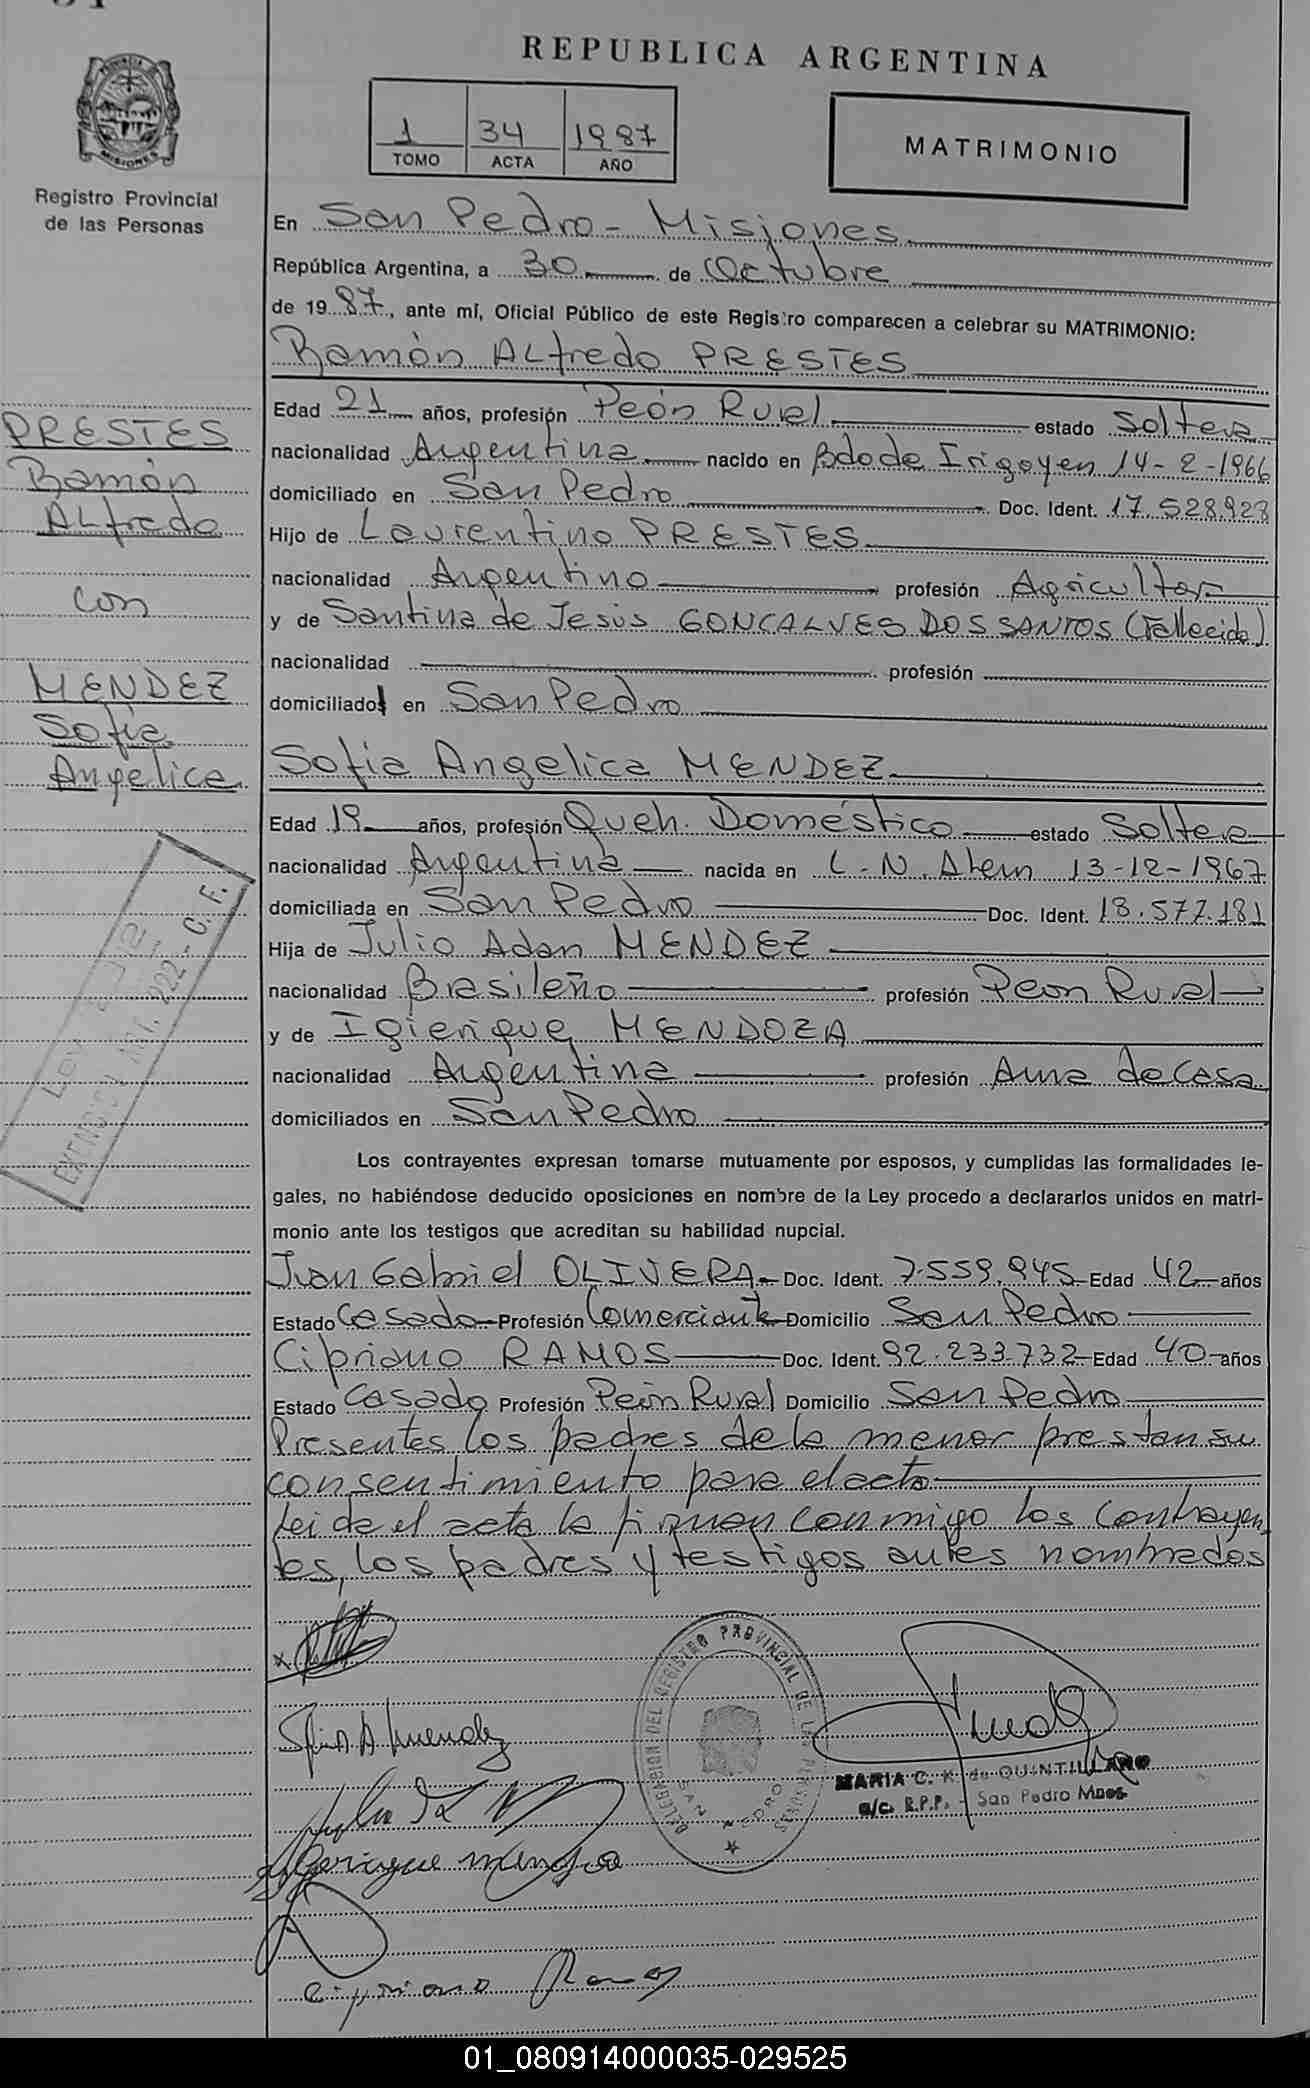 REPUBLICA ARGENTINA
1 34 1987
TOMO ACTA AÑO
MATRIMONIO
MISIONES
Registro Provincial
de las Personas
En San Pedro - Misiones
República Argentina, a 30 de Octubre
de 1987, ante mí, Oficial Público de este Registro comparecen a celebrar su MATRIMONIO:
Ramón ALfredo PRESTES
Edad 21 años, profesión Peón Rural estado Soltera
nacionalidad Argentina nacido en Bdo de Irigoyen 14-2-1966
domiciliado en San Pedro Doc. Ident. 17.528.923
Hijo de Laurentino PRESTES
nacionalidad Argentino profesión Agricultor
y de Santina de Jesús GONCALVES DOS SANTOS (Fallecida)
nacionalidad profesión
domiciliado en San Pedro
Sofia Angelica MENDEZ
Edad 19 años, profesión Queh. Doméstico estado Soltera
nacionalidad Argentina nacida en L.N. Alem 13-12-1967
domiciliada en San Pedro Doc. Ident. 18.577.181
Hija de Julio Adan MENDEZ
nacionalidad Brasileño profesión Peon Rural
y de Igierique MENDOZA
nacionalidad Argentina profesión Ama de Casa
domiciliados en San Pedro
Los contrayentes expresan tomarse mutuamente por esposos, y cumplidas las formalidades le-
gales, no habiéndose deducido oposiciones en nombre de la Ley procedo a declararlos unidos en matri-
monio ante los testigos que acreditan su habilidad nupcial.
Juan Gabriel OLIVERA Doc. Ident. 7.559.945 Edad 42 años
Estado Casado Profesión Comerciante Domicilio San Pedro
Cipriano RAMOS Doc. Ident. 92.233.732 Edad 40 años
Estado Casado Profesión Peón Rural Domicilio San Pedro
Presentes los padres de la menor prestan su
consentimiento para el acto
Leida el acta la firman conmigo los Contrayen
tes, los padres y testigos antes nombrados
PRESTES
Ramón
ALfredo
con
MENDEZ
Sofia
Angelica
LEY
EXENCION ART. 222 - C. F.
Sofia A Mendez
DELEGACION DEL REGISTRO PROVINCIAL DE LAS PERSONAS
SAN PEDRO
MARIA C. K. de QUINTILLANO
a/c. R.P.P. - San Pedro Mnes.
Igerique mendosa
cipriano Ramos
01_080914000035-029525